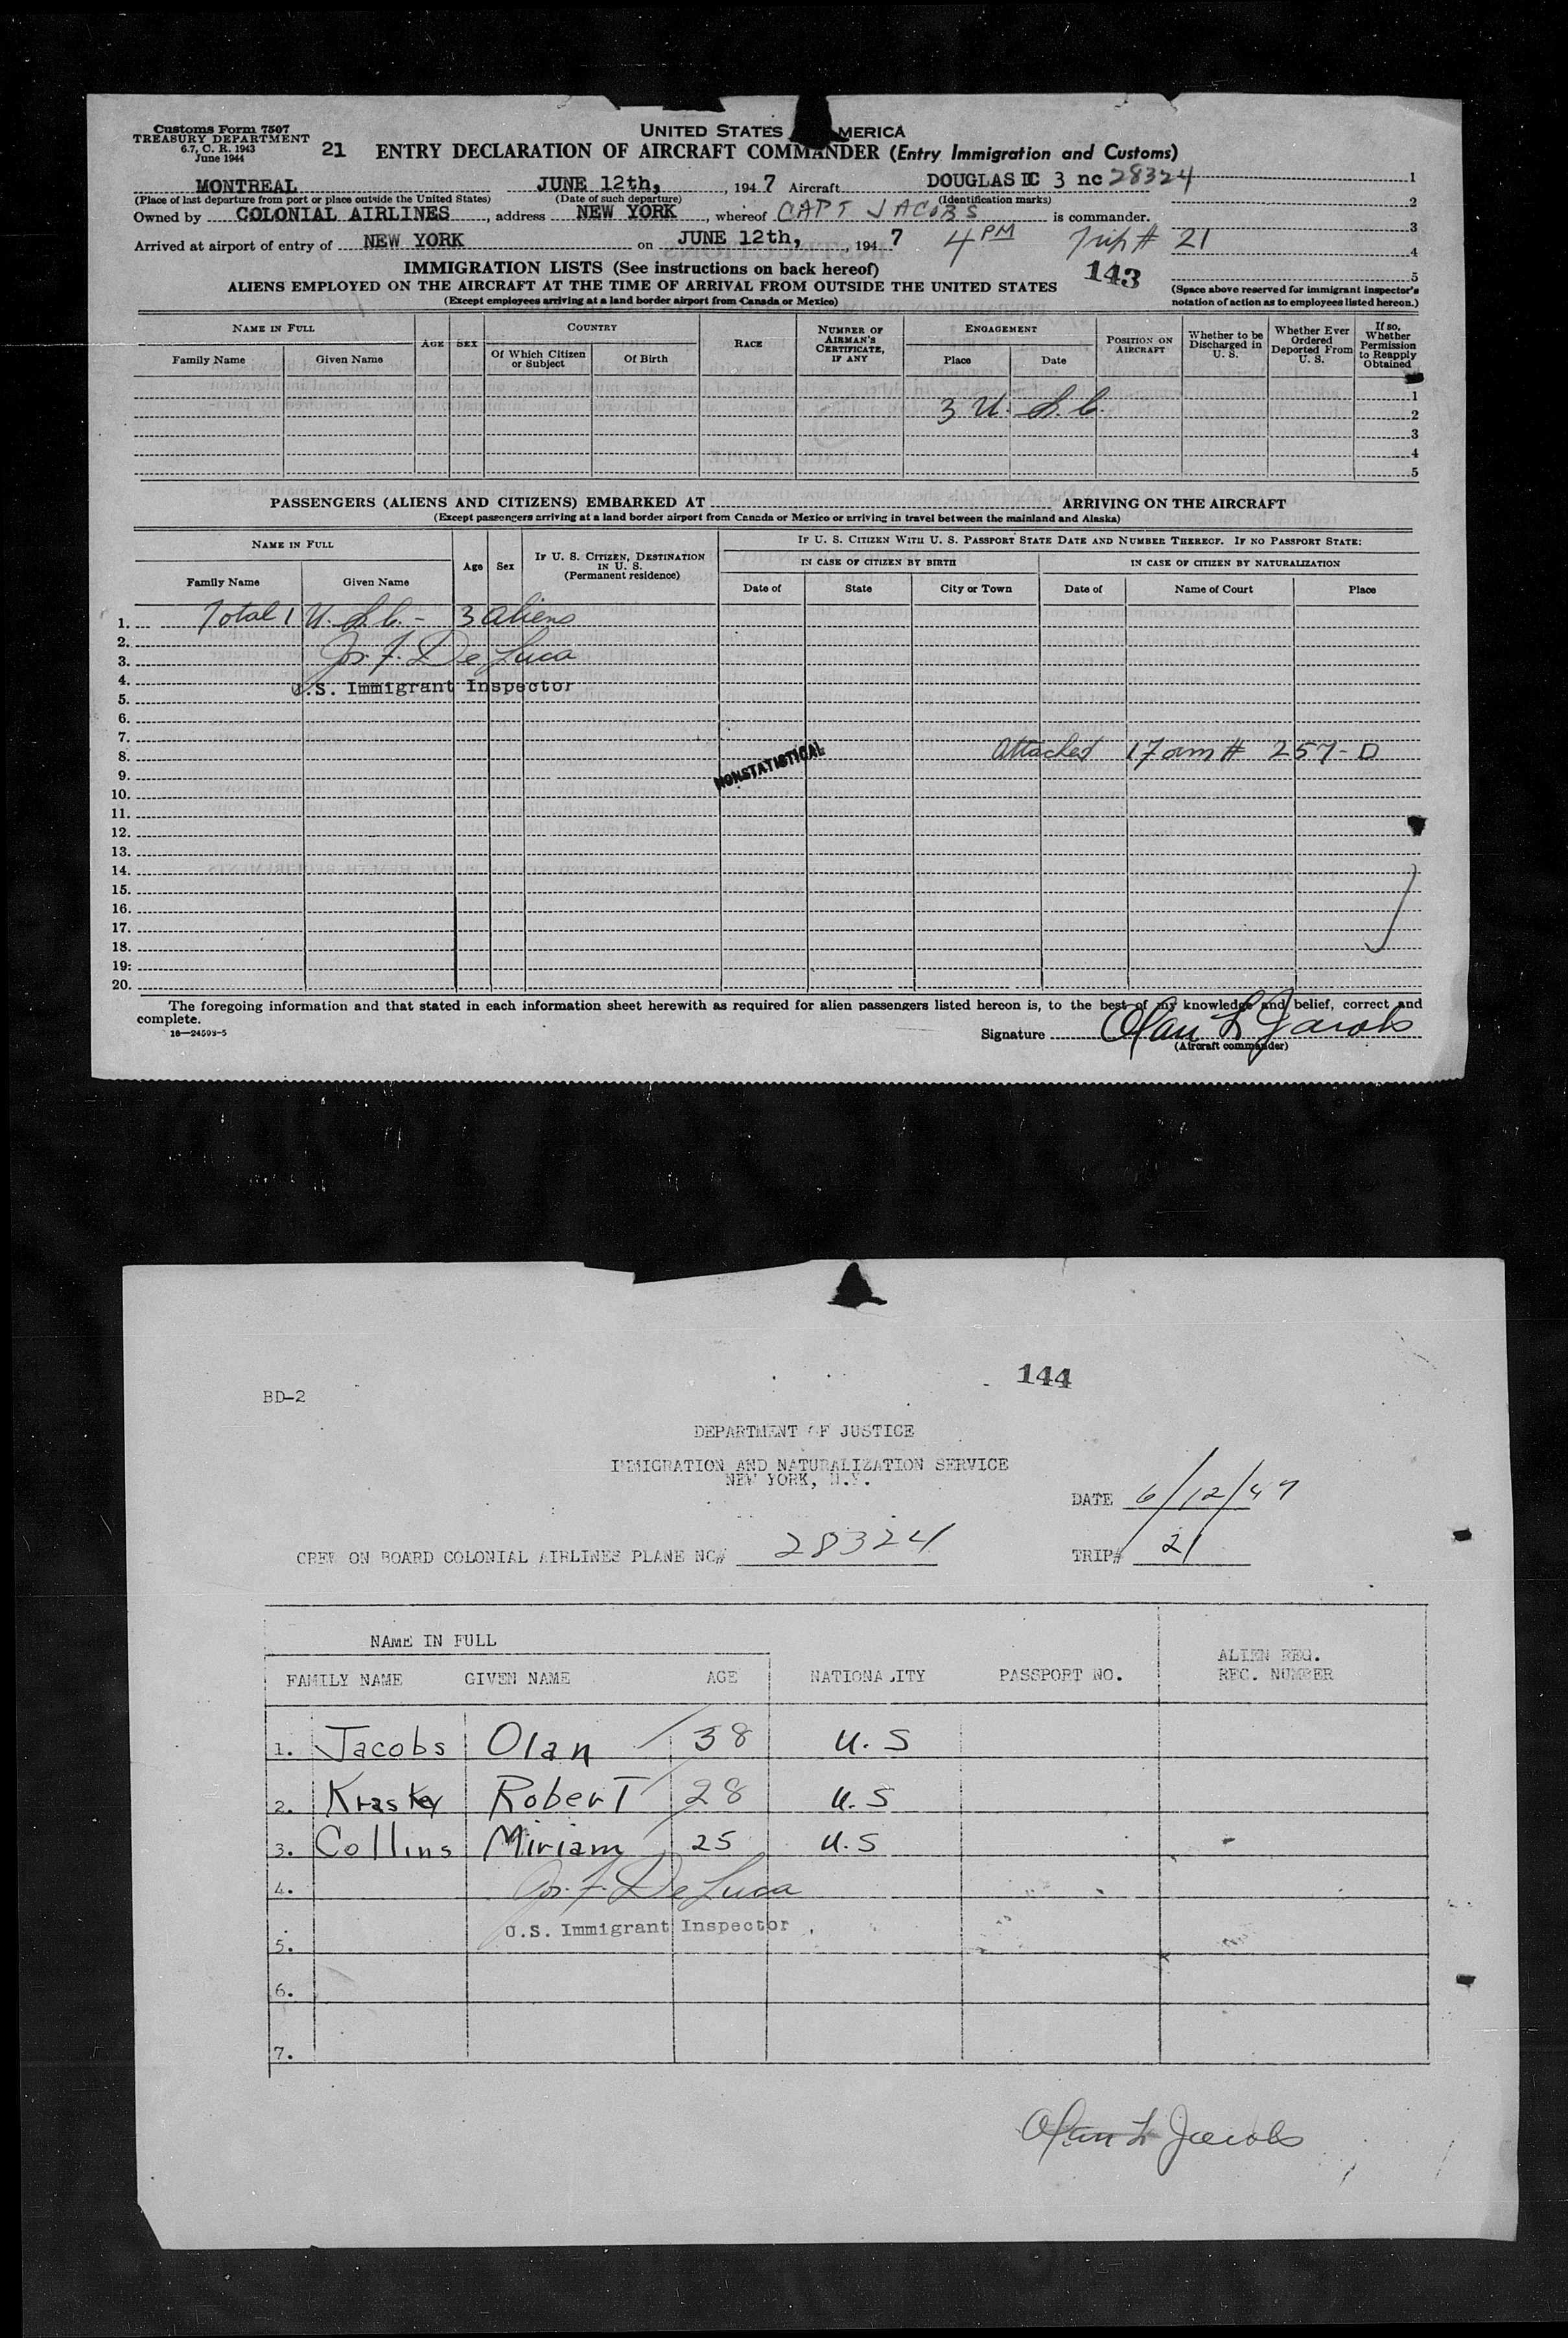 Customs Form 7507
TREASURY DEPARTMENT
6.7, C. R. 1943
June 1944
21
UNITED STATES MERICA
ENTRY DECLARATION OF AIRCRAFT COMMANDER (Entry Immigration and Customs)
MONTREAL JUNE 12th, , 1947 Aircraft DOUGLAS DC 3 nc 28324 1
(Place of last departure from port or place outside the United States) (Date of such departure) (Identification marks) 2
Owned by COLONIAL AIRLINES , address NEW YORK , whereof CAPT JACOBS is commander.
3
Arrived at airport of entry of NEW YORK on JUNE 12th, , 1947 4 PM Trip # 21
4
IMMIGRATION LISTS (See instructions on back hereof) 143 5
ALIENS EMPLOYED ON THE AIRCRAFT AT THE TIME OF ARRIVAL FROM OUTSIDE THE UNITED STATES
(Except employees arriving at a land border airport from Canada or Mexico)
(Space above reserved for immigrant inspector's notation of action as to employees listed hereon.)
NAME IN FULL AGE SEX COUNTRY RACE NUMBER OF AIRMAN'S CERTIFICATE, IF ANY ENGAGEMENT POSITION ON AIRCRAFT Whether to be Discharged in U. S. Whether Ever Ordered Deported From U. S. If so, Whether Permission to Reapply Obtained
Family Name Given Name Of Which Citizen or Subject Of Birth Place Date
1
3 U. S. C. 2
3
4
5
PASSENGERS (ALIENS AND CITIZENS) EMBARKED AT ARRIVING ON THE AIRCRAFT
(Except passengers arriving at a land border airport from Canada or Mexico or arriving in travel between the mainland and Alaska)
NAME IN FULL Age Sex IF U. S. CITIZEN, DESTINATION IN U. S. (Permanent residence) IF U. S. CITIZEN WITH U. S. PASSPORT STATE DATE AND NUMBER THEREOF. IF NO PASSPORT STATE:
IN CASE OF CITIZEN BY BIRTH IN CASE OF CITIZEN BY NATURALIZATION
Family Name Given Name Date of State City or Town Date of Name of Court Place
1. Total 1 U. S. C. - 3 aliens
2.
3. Jos. F. De Luca
4. U.S. Immigrant Inspector
5.
6.
7.
8. NONSTATISTICAL Attached 17 am # 257-D
9.
10.
11.
12.
13.
14.
15.
16.
17.
18.
19.
20.
The foregoing information and that stated in each information sheet herewith as required for alien passengers listed hereon is, to the best of my knowledge and belief, correct and
complete.
16—24598-5
Signature Olan L Jacobs
(Aircraft commander)
144
BD-2
DEPARTMENT OF JUSTICE
IMMIGRATION AND NATURALIZATION SERVICE
NEW YORK, N.Y.
DATE 6/12/47
CREW ON BOARD COLONIAL AIRLINES PLANE NC# 28324 TRIP# 21
NAME IN FULL
FAMILY NAME GIVEN NAME AGE NATIONALITY PASSPORT NO. ALIEN REG. REC. NUMBER
1. Jacobs Olan 38 U. S
2. Robert 28 U. S
3. Collins Miriam 25 U. S
4. Jos. F. De Luca
U.S. Immigrant Inspector
5.
6.
7.
Olan L Jacobs